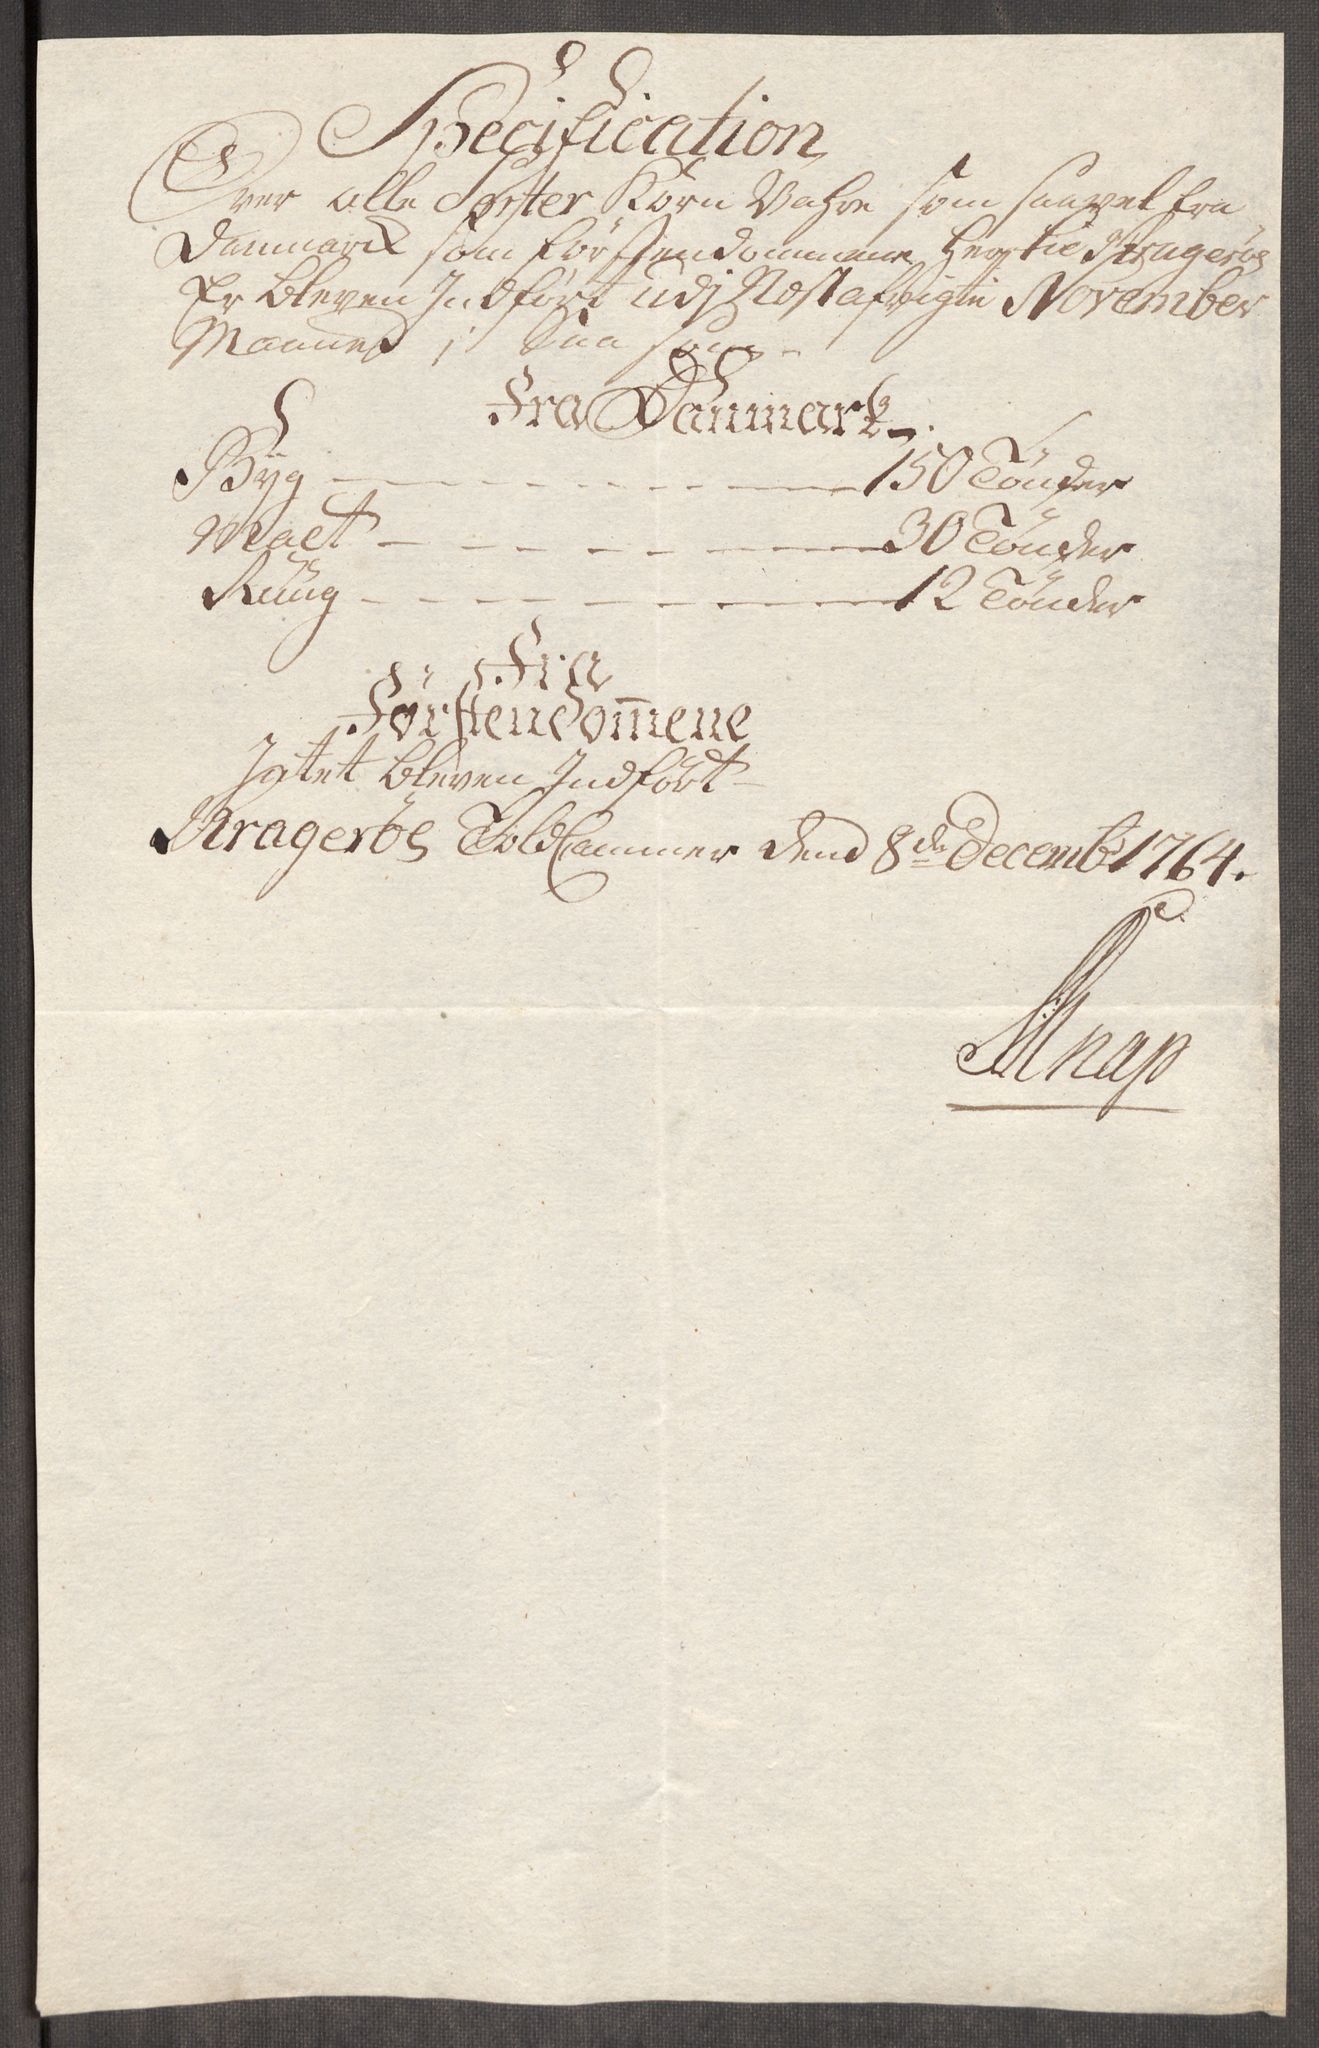 Specification
Over alle Sorter Korn Vahre som saavel fra
Danmark som förstendommene her til Kragerøe
Er bleven Indført udj Nest afvigte November
Maaned, Saa som
Fra Danmark
Byg 150 Tönder
Malt 30 Tönder
Rüüg 12 Tönder
Fra
Förstendom̅ene
Intet bleven Indfört
Krageröe Told Cammer dend 8de Decembr 1764.
Knap